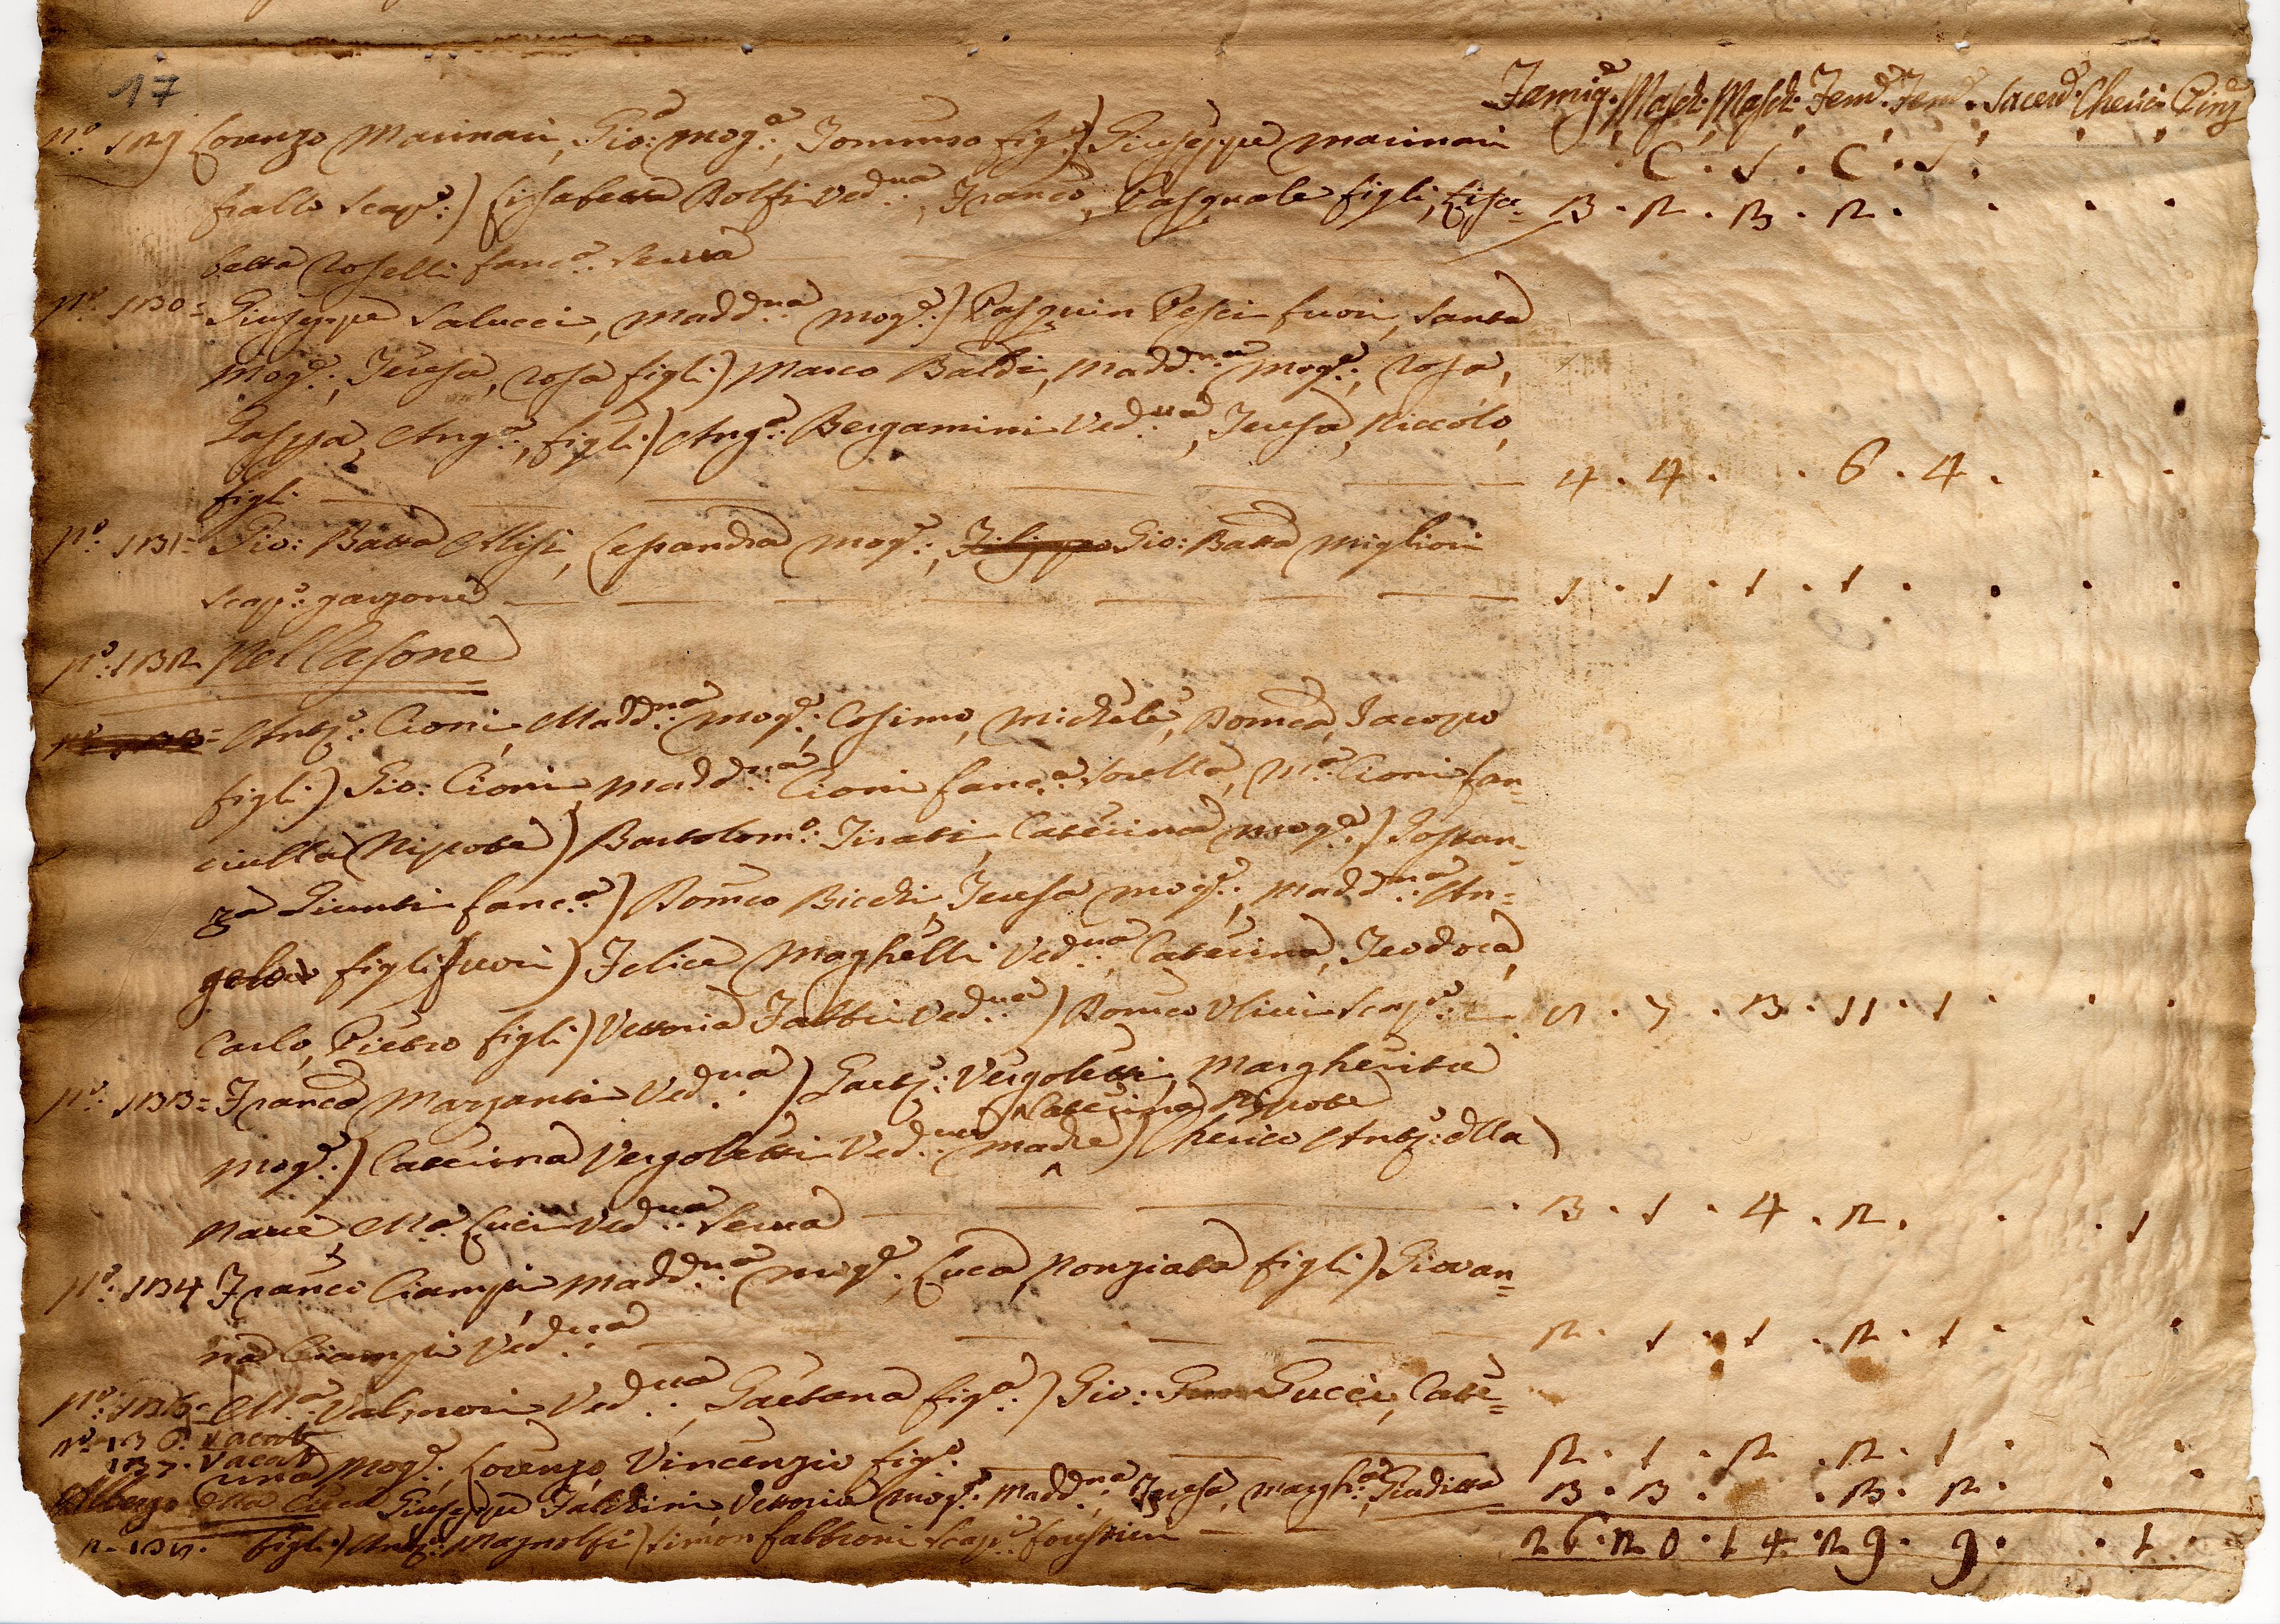 17
Famig.e Masch. Masch. Fem.e Fem.e Sacerd. Cherici Pinz.e
C . S . C . S .
N.o 129 Lorenzo Marinari, Gio: mog.a, Tommaso fig.o) Giuseppe Marinari
frallo scap.o:) Lisabetta Dolfi Ved.ua, Franco, Pasquale figli, Lisa= 3 . 2 . 3 . 2 .
betta Roselli fanc.a Serva
N.o 130= Giuseppe Salucci, Madd.na mog.e:) Pasquin Pesci fuori, Santa
Mog.e:, Teresa, Rosa figli) Marco Baldi, Madd.na Mog.e:, Rosa,
Gaspa, Ang.a:, figli) Ang.a: Bergamini Ved.ua, Teresa, Niccolo,
figli 4 . 4 . . 6 . 4 .
N.o 131= Gio: Batta Misi, Lesandra mog.e:, Filippo Gio: Batta Migliori
scap.o: garzone 1 . 1 . 1 . 1 .
N.o 132 Nel Casone
Ant.o: Cioni, Madd.na mog.e:, Cosimo, Michele, Domca, Jacopo
figli) Gio: Cioni, Madd.na Cioni fanc.a Sorella, M.a Cioni fan=
ciulla Nipote) Bartolom.o: Tirati, Caterina mog.e) Gostan=
za Giunti fanc.a) Domco Bicchi, Teresa mog.e:, Madd.na An=
gela figli fuori) Felice Maghelli Ved.ua Caterina, Teodora,
Carlo, Pietro figli) Vettoria Falbi Ved.ua) Domco Ulivi Scap.o: 7 . 3 . 11 . 1 .
N.o 133= Franca Marzanti Ved.ua) Gaet.o: Vergoletti, Margherita
Caterina Nipote
mog.e:) Caterina Vergoletti Ved.ua Madre) Cherico Ant.o: dlla
Nave, M.a Luci Ved.ua Serva 3 . 1 . 4 . 2 . . . 1
N.o 134 Franco Ciampi, Madd.na mog.e:, Luca, Nonziata figli) Giovan=
na Ciampi Ved.ua 2 . 1 . 1 . 2 . 1 .
N.o 135= M.a Valmori Ved.ua, Gaetana fig.a:) Gio: Gucci, Cate=
N.o 136. vacat
137. vacat
rina mog.e:, Lorenzo, Vincenzio fig.i 2 . 1 . 2 . 2 . 1 .
Albergo dlla Luca Giuseppe Fabbrini, Vettoria mog.e:, Madd.na, Teresa, Margh.a, Giuditta 3 . 3 . . 3 . 2 .
figli) Ant.o: Magnolfi) Simon Fabbroni scap.o:
26 . 20 . 14 . 29 . 9 . . 1 .